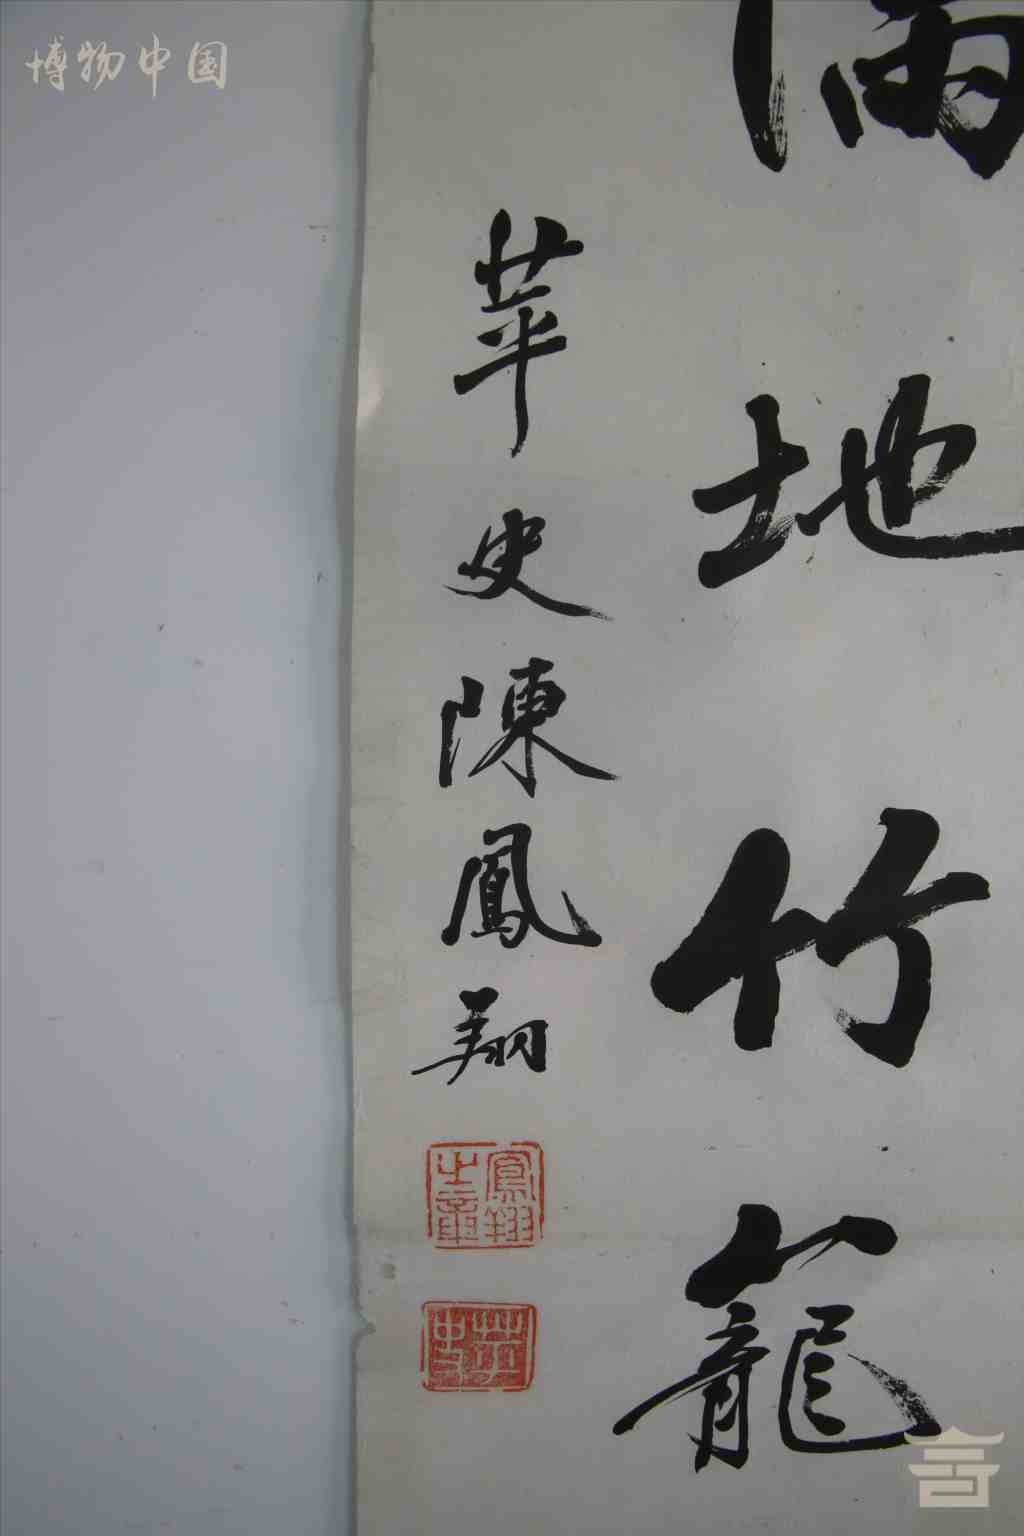 博物中国
滿地竹籠
華史陳鳳翔
鳳翔之章